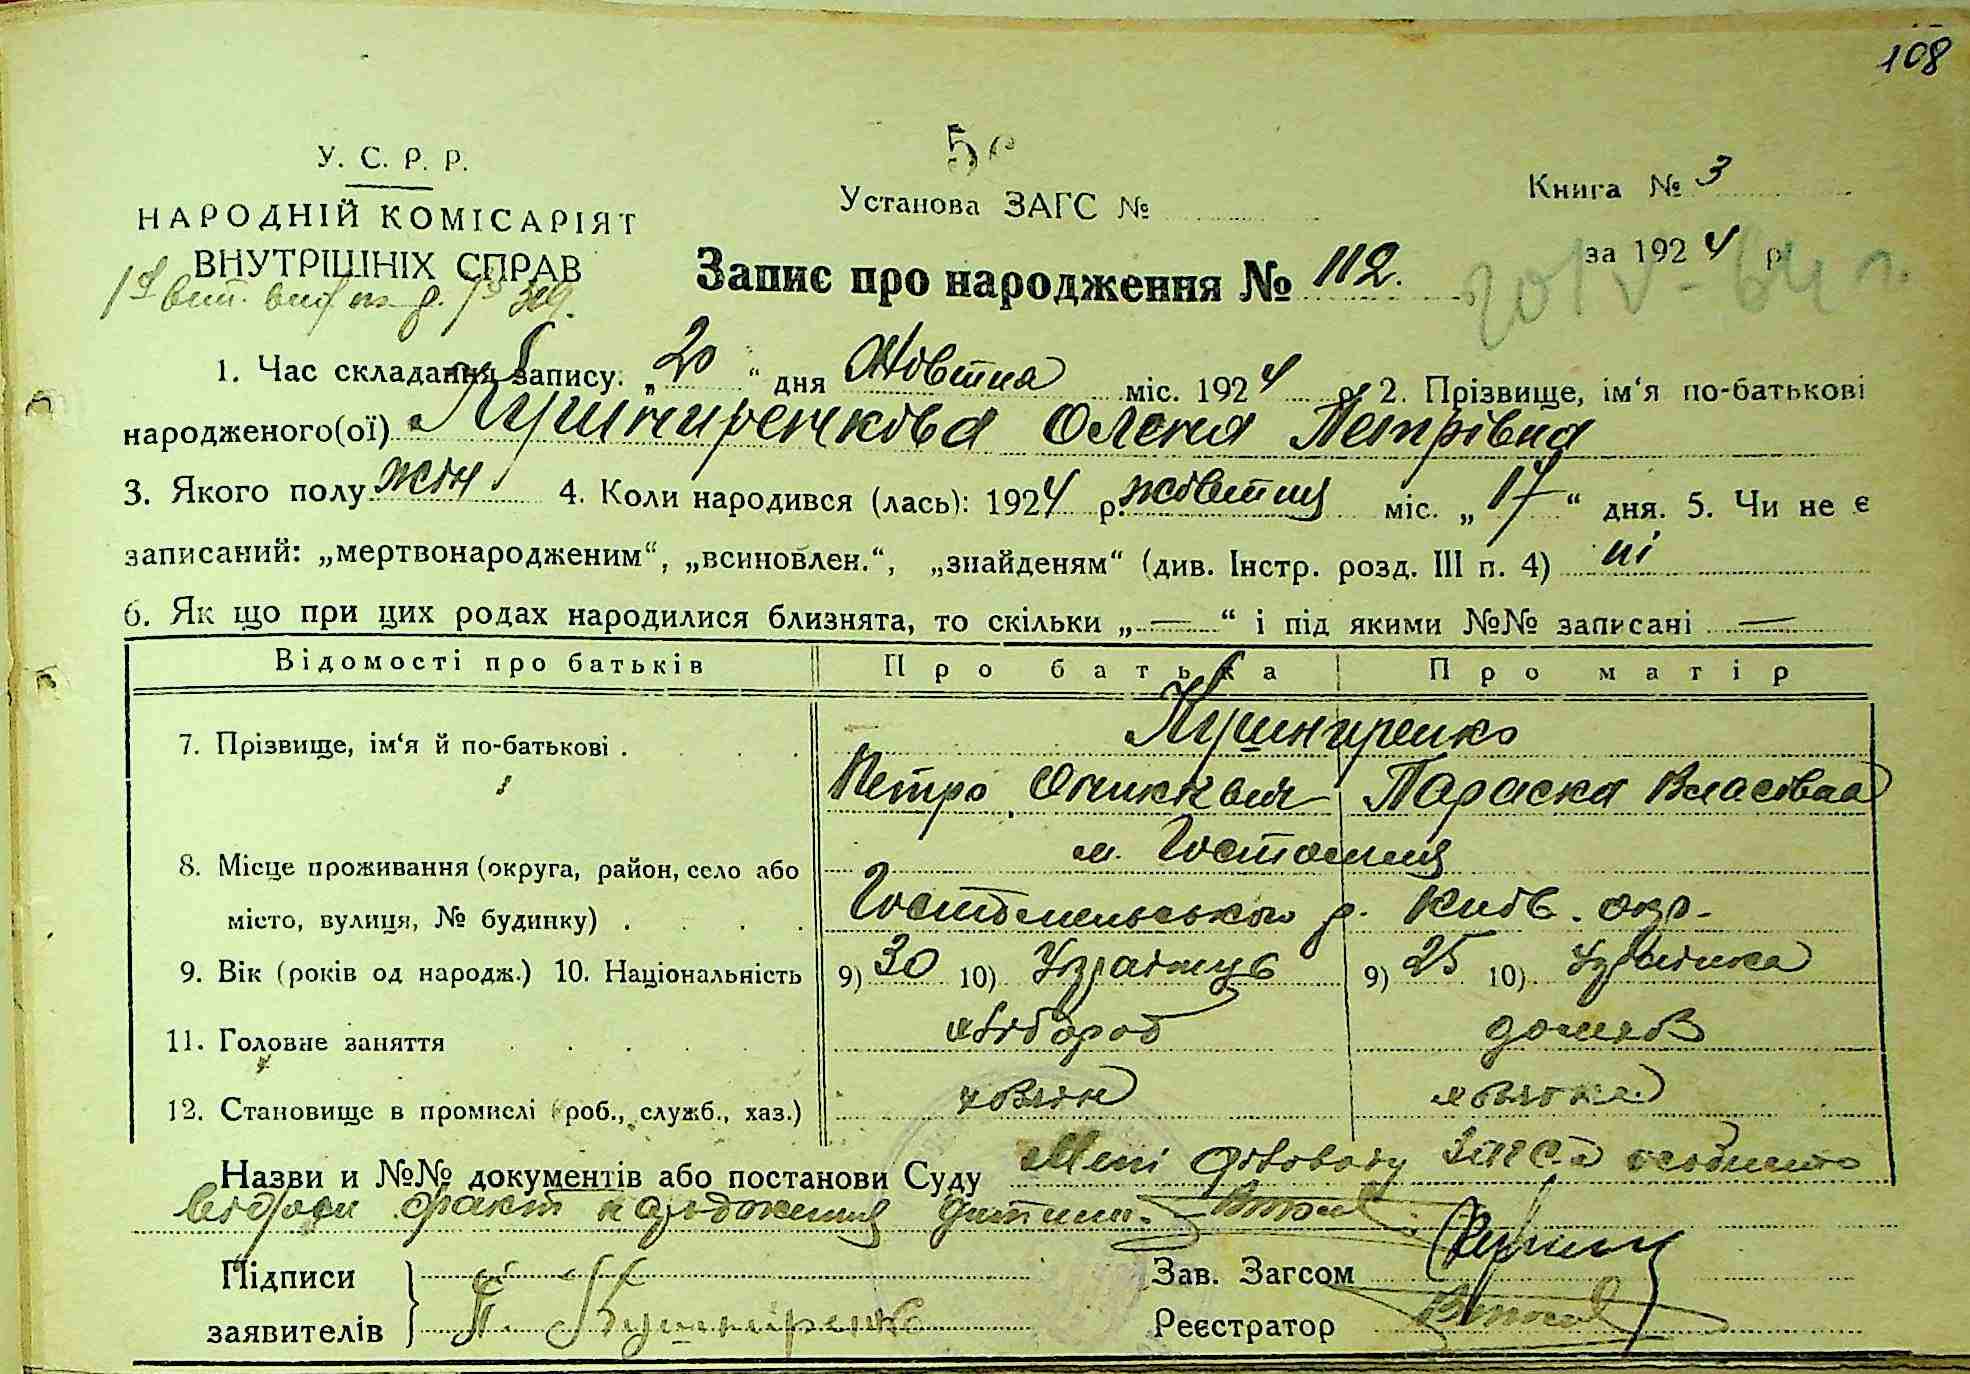 108
У. С. Р. Р.
НАРОДНІЙ КОМІСАРІЯТ
ВНУТРІШНІХ СПРАВ
Установа ЗАГС №
Книга № 3
за 1924 р
Запис про народження № 112.
1. Час складання запису: „20“ дня Жовтня міс. 1924 р 2. Прізвище, ім‘я по-батькові
народженого(ої) Кушниренкова Олена Петрівна
3. Якого полу жін 4. Коли народився (лась): 1924 р. жовтня міс. „17“ дня. 5. Чи не є
записаний: „мертвонародженим“, „всиновлен.“, „знайденям“ (див. Інстр. розд. III п. 4) ні
6. Як що при цих родах народилися близнята, то скільки „—“ і під якими №№ записані —
Відомості про батьків Про батька Про матір
7. Прізвище, ім‘я й по-батькові . Кушниренко
Петро Параска Власівна
8. Місце проживання (округа, район, село або м. Гостомля
місто, вулиця, № будинку) . Гостомельського р. Київ. окр.
9. Вік (років од народж.) 10. Національність 9) 30 10) Українець 9) 25 10) Українка
11. Головне заняття хлібороб домов
12. Становище в промислі (роб., служб., хаз.)
Назви и №№ документів або постанови Суду Мені діловоду ЗАГС-а особисто
відомий факт народження дитини.
Підписи
заявителів П. Кушниренко
Зав. Загсом
Реєстратор